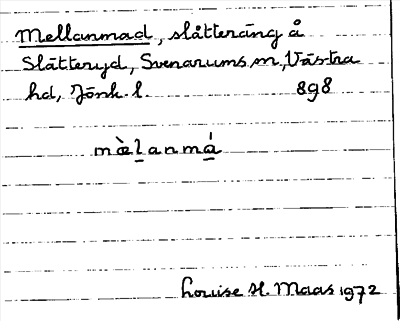 Mellanmad, slåtteräng å
Slätteryd, Svenarums sn, Västra
hd, Jönk. l. 898
mæ̀lanmá
Louise H. Maas 1972